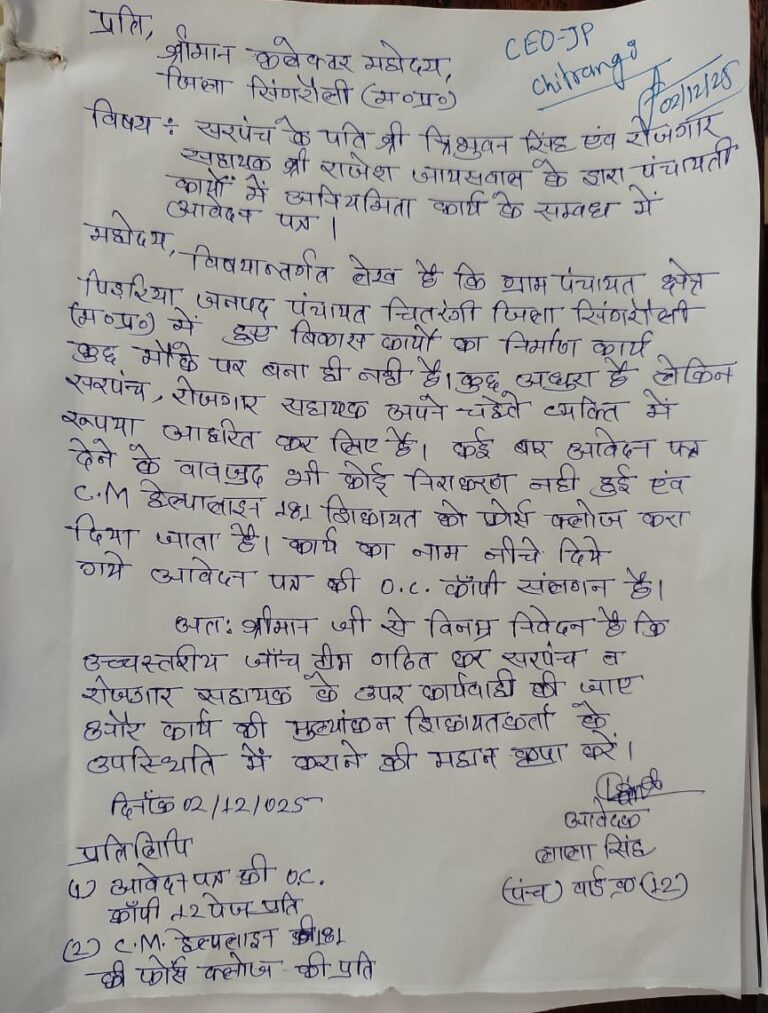 प्रति,
श्रीमान कलेक्टर महोदय,
जिला सिंगरौली (म०प्र०)
CEO-JP
Chitrangi
02/12/25
विषय : सरपंच के पति श्री त्रिभुवन सिंह एंव रोजगार
सहायक श्री राजेश जायसवाल के द्वारा पंचायती
कार्यों में अनियमिता कार्य के सम्वध में
आवेदन पत्र ।
महोदय,
विषयान्तर्गत लेख है कि ग्राम पंचायत क्षेत्र
पिड़रिया जनपद पंचायत चितरंगी जिला सिंगरौली
(म०प्र०) में हुए बिकास कार्यों का निर्माण कार्य
कुछ मौके पर बना ही नही है। कुछ अधुरा है लेकिन
सरपंच, रोजगार सहायक अपने चहेते व्यक्ति में
रूपया आहरित कर लिए है। कई बार आवेदन पत्र
देने के वावजुद भी कोई निराकरण नही हुई एंव
C.M हेल्पालाइन 181 शिकायत को फोर्स क्लोज करा
दिया जाता है। कार्य का नाम नीचे दिये
गये आवेदन पत्र की O.C. कॉपी संलगन है।
अत: श्रीमान जी से विनम्र निवेदन है कि
उच्चस्तरीय जाँच टीम गठित कर सरपंच व
रोजगार सहायक के उपर कार्यवाही की जाए
और कार्य की मुल्यांकन शिकायतकर्ता के
उपस्थिति में कराने की महान कृपा करें।
दिनाँक 02/12/025
आवेदक
लाला सिंह
(पंच) वार्ड क्र (12)
प्रतिलिपि
(1) आवेदन पत्र की O.C.
कॉपी 12 पेज प्रति
(2) C.M. हेल्पलाइन 181
की फोर्स क्लोज की प्रति